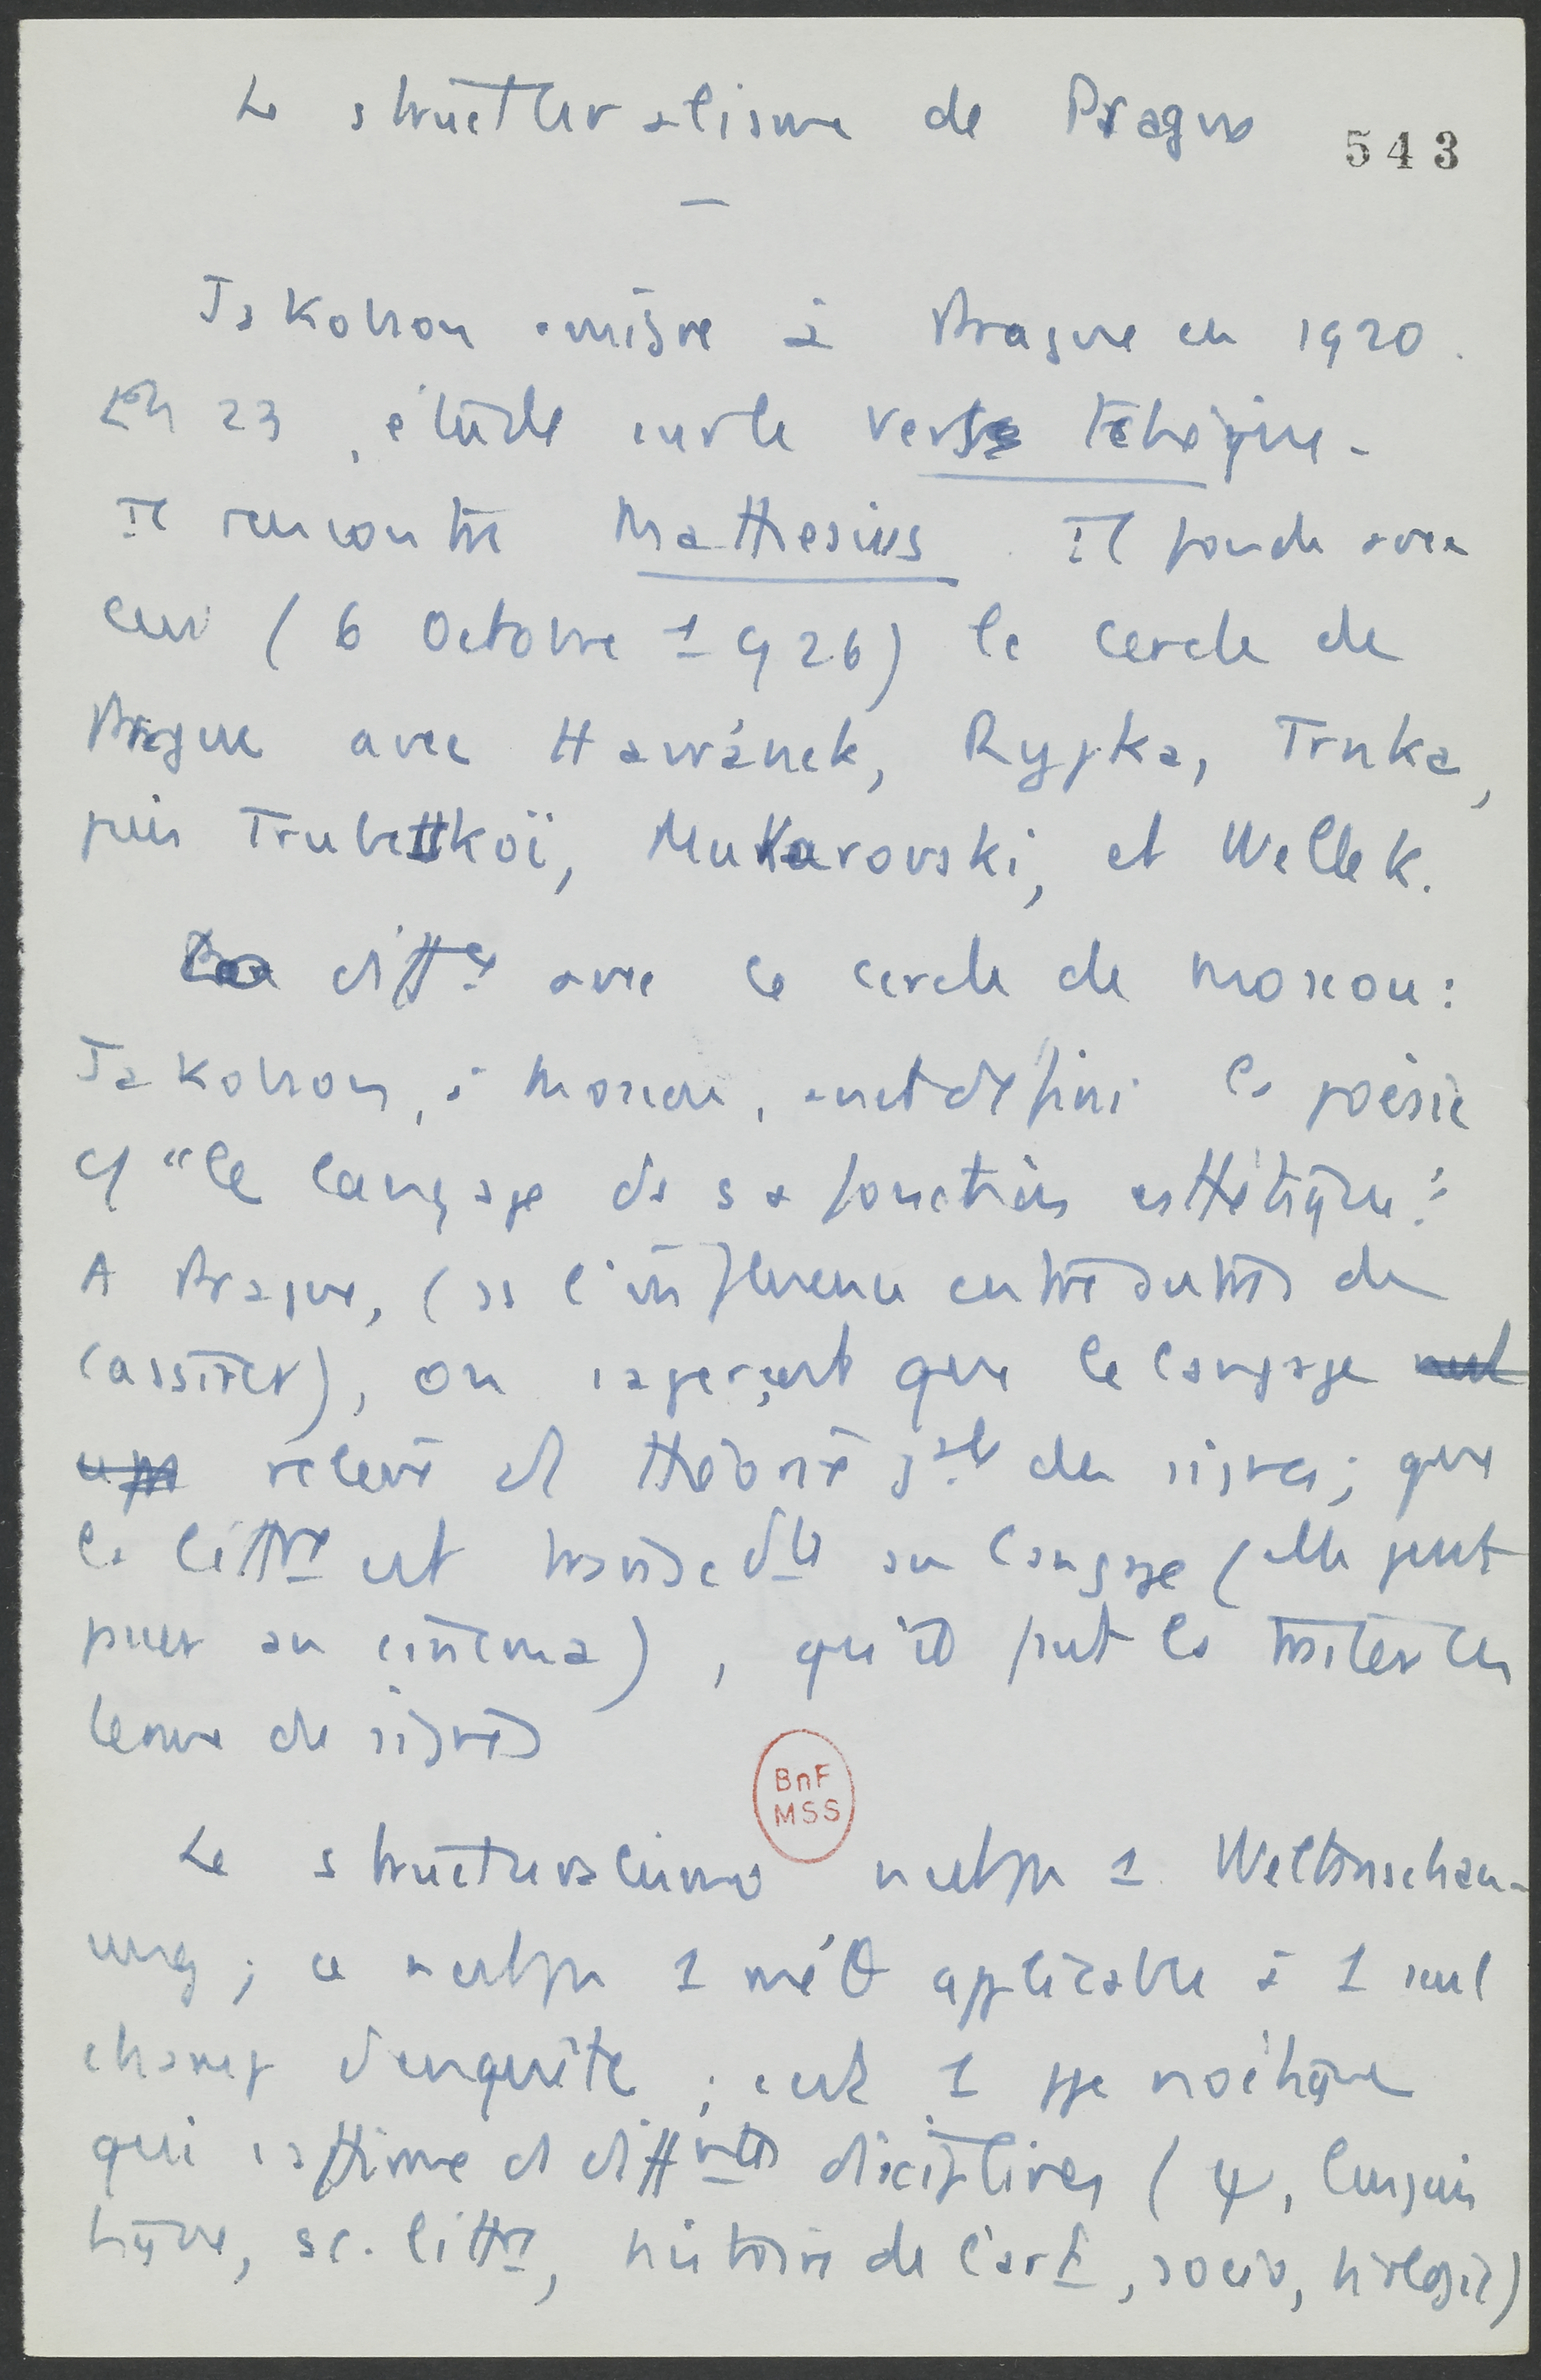 Le structuralisme de Prague
543
Jakobson émigre à Prague en 1920.
En 23, étude sur le vers tchèque.
Il rencontre Mathesius. Il fonde avec
eux (6 Octobre 1926) le cercle de
Prague avec Havránek, Rypka, Trnka,
puis Trubetskoï, Mukarovski, et Wellek.
diffce avec le cercle de Moscou :
Jakobson, à Moscou, avait défini la poésie
"le langage ds sa fonction esthétique".
A Prague, (ss l'influence entre autres de
Cassirer), on s'aperçut que le langage
relève d'1 théorie gale des signes ; que
la littre est transcdte au langage (elle peut
passer au cinéma), qu'il faut la traiter en
terme de signes
BnF
MSS
Le structuralisme n'est pas 1 Weltanschau-
ung ; ce n'est pas 1 méθ applicable à 1 seul
champ d'enquête ; c'est 1 ppe noétique
qui s'affirme ds différentes disciplines (ψ, linguis
tique, sc. littre, histoire de l'art, socio, biologie)